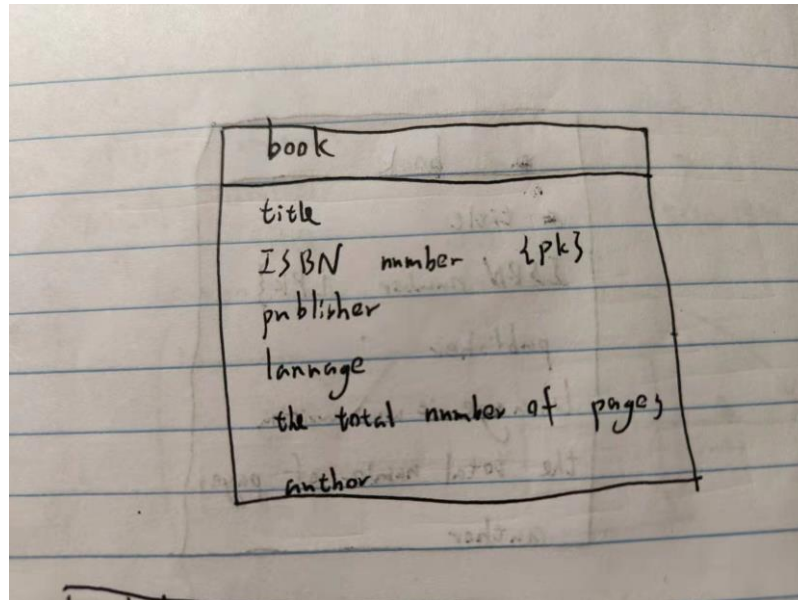 book
title
ISBN number {pk}
publisher
lannage
the total number of pages
author